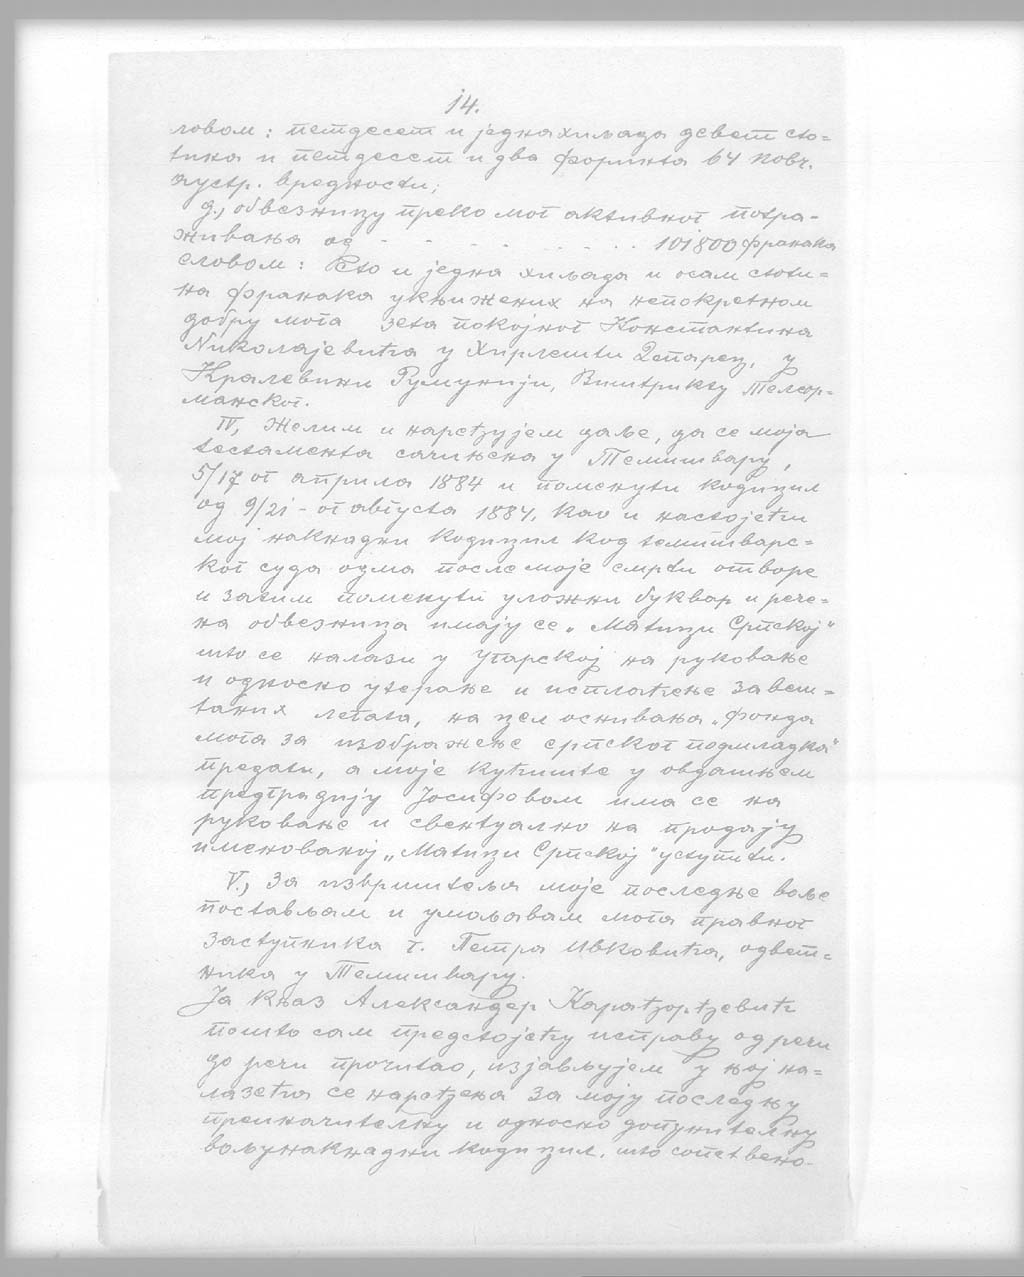 14.
ловом: петдесет и једнахиљада девет сто=
тина и петдесет и два форинта 64 новч.
аустр. вредности;
д., обвезницу преко мог активног потра-
живања од - - - - - - - - 101800 франака
словом: Сто и једна хиљада и осам стоти=
на франака укњижених на непокретном
добру мога зета покојног Константина
Николајевића у Хирлешти, у
Кралевини Румунији, Телеор-
манског.
IV, Желим и наређујем даље, да се моја
тестамента сачињена у Темишвару,
5/17 ог априла 1884 и поменути кодицил
од 9/21 - ог августа 1884. као и настојећи
мој накнадни кодицил код темишварс=
ког суда одма после моје смрти отворе
и затим поменути уложни буквар и рече=
на обвезница имају се „Матици Српској"
што се налази у Угарској на руковање
и односно утерање и исплаћење завеш=
таних легата, на цел оснивања „Фонда
мога за изображење српског подмладка"
предати, а моје кућиште у овдашњем
предграђију Јосифовом има се на
руковање и евентуално на продају
именованој „Матици Српској" уступити.
V., За извршитеља моје последње воље
постављам и умољавам мога правног
заступника г. Петра Ивковића, одвет=
ника у Темишвару.
Ја Књаз Александер Карађорђевић
пошто сам предстојећу исправу од речи
до речи прочитао, изјављујем у њој на=
лазећа се наређења за моју последњу
преиначителну и односно допунителну
вољу накнадни кодицил. што сопствено-